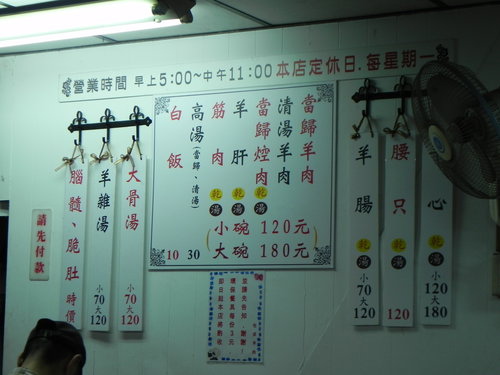 營業時間 早上5:00~中午11:00 本店定休日.每星期一
當歸羊肉
清湯羊肉
當歸焢肉
羊肝 乾湯
筋肉 乾湯
(小碗 120元
大碗 180元)
高湯(當歸、清湯) 30
白飯 10
大骨湯 小70大120
羊雜湯 小70大120
腦髓、脆肚 時價
請先付款
羊腸 乾湯 小70大120
腰只 乾湯 120
心 乾湯 小120大180
並請先告知,謝謝!
環保餐具每份3元
即日起本店將酌收